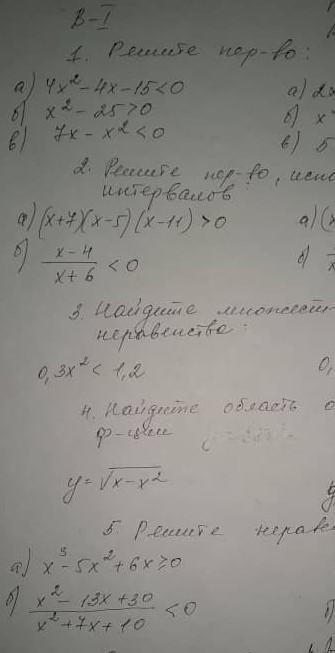 В-I
1. Решите нер-во:
а) 4x² - 4x - 15 < 0
а) 2x
б) x² - 25 > 0
б) x
в) 7x - x² < 0
в) 5
2. Решите нер-во, испо
интервалов:
а) (x+7)(x-5)(x-11) > 0
а) (x
б) x-4 / x+6 < 0
б)
3. Найдите множест
неравенства:
0,3x² < 1,2
0,
4. Найдите область о
ф-ции
y = √(x - x²)
y
5. Решите нераве
а) x³ - 5x² + 6x ≥ 0
б) x² - 13x + 30 / x² + 7x + 10 < 0